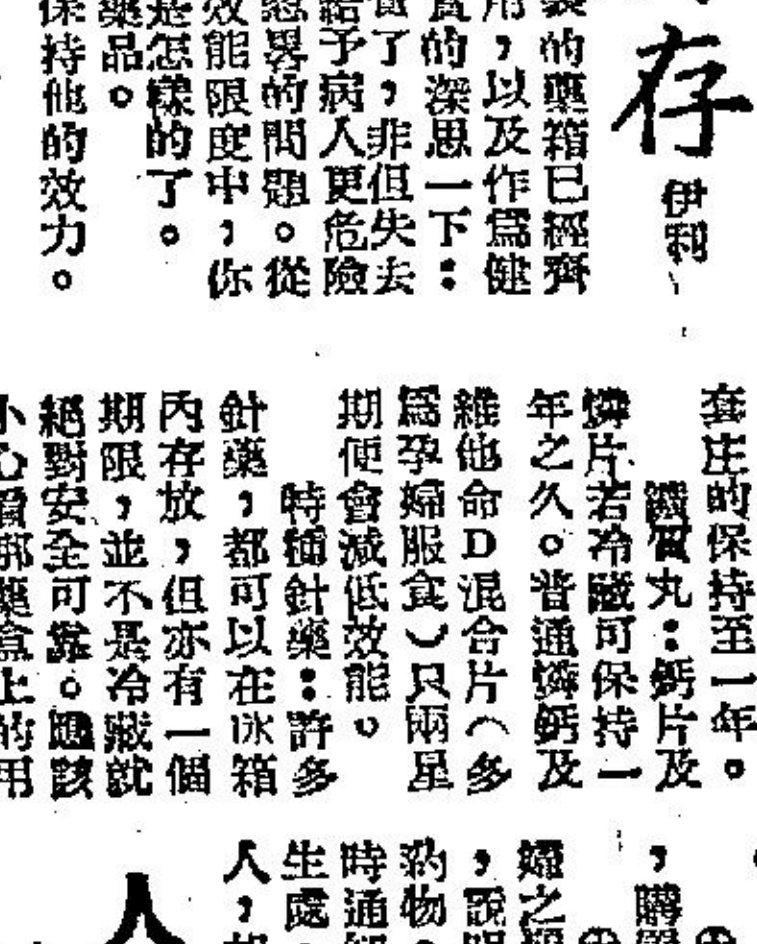 存
伊利
裝的藥箱已經齊
用，以及作爲健
置的深思一下：
了，非但失去
給予病人更危險
忽畧的問題。從
效能限度中，你
是怎樣的了。
藥品。
保持他的效力。
套庄的保持至一年。
鐵質丸：鈣片及
燐片若冷藏可保持一
年之久。普通燐鈣及
維他命D混合片（多
爲孕婦服食）只兩星
期便會減低效能。
特種針藥：許多
針藥，都可以在冰箱
內存放，但亦有一個
期限，並不是冷藏就
絕對安全可靠。應該
小心看那藥盒上的用
，購
婦之
，說明
葯物。
時通
生處
人，都
人